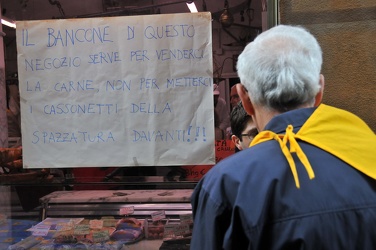 IL BANCONE DI QUESTO
NEGOZIO SERVE PER VENDERCI
LA CARNE, NON PER METTERCI
I CASSONETTI DELLA
SPAZZATURA DAVANTI!!!